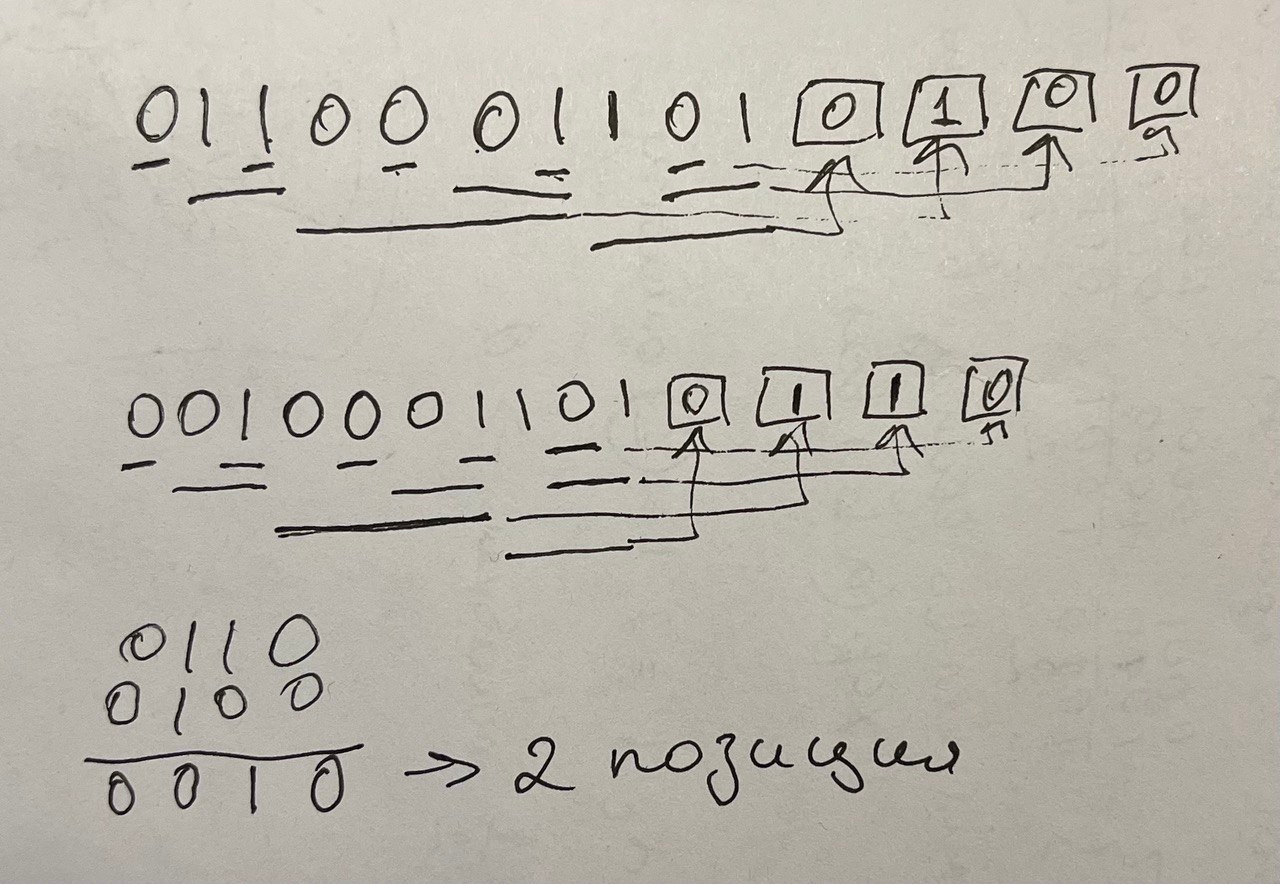 0110001101 0 1 0 0
0010001101 0 1 1 0
0110
0100
0010 → 2 позиция